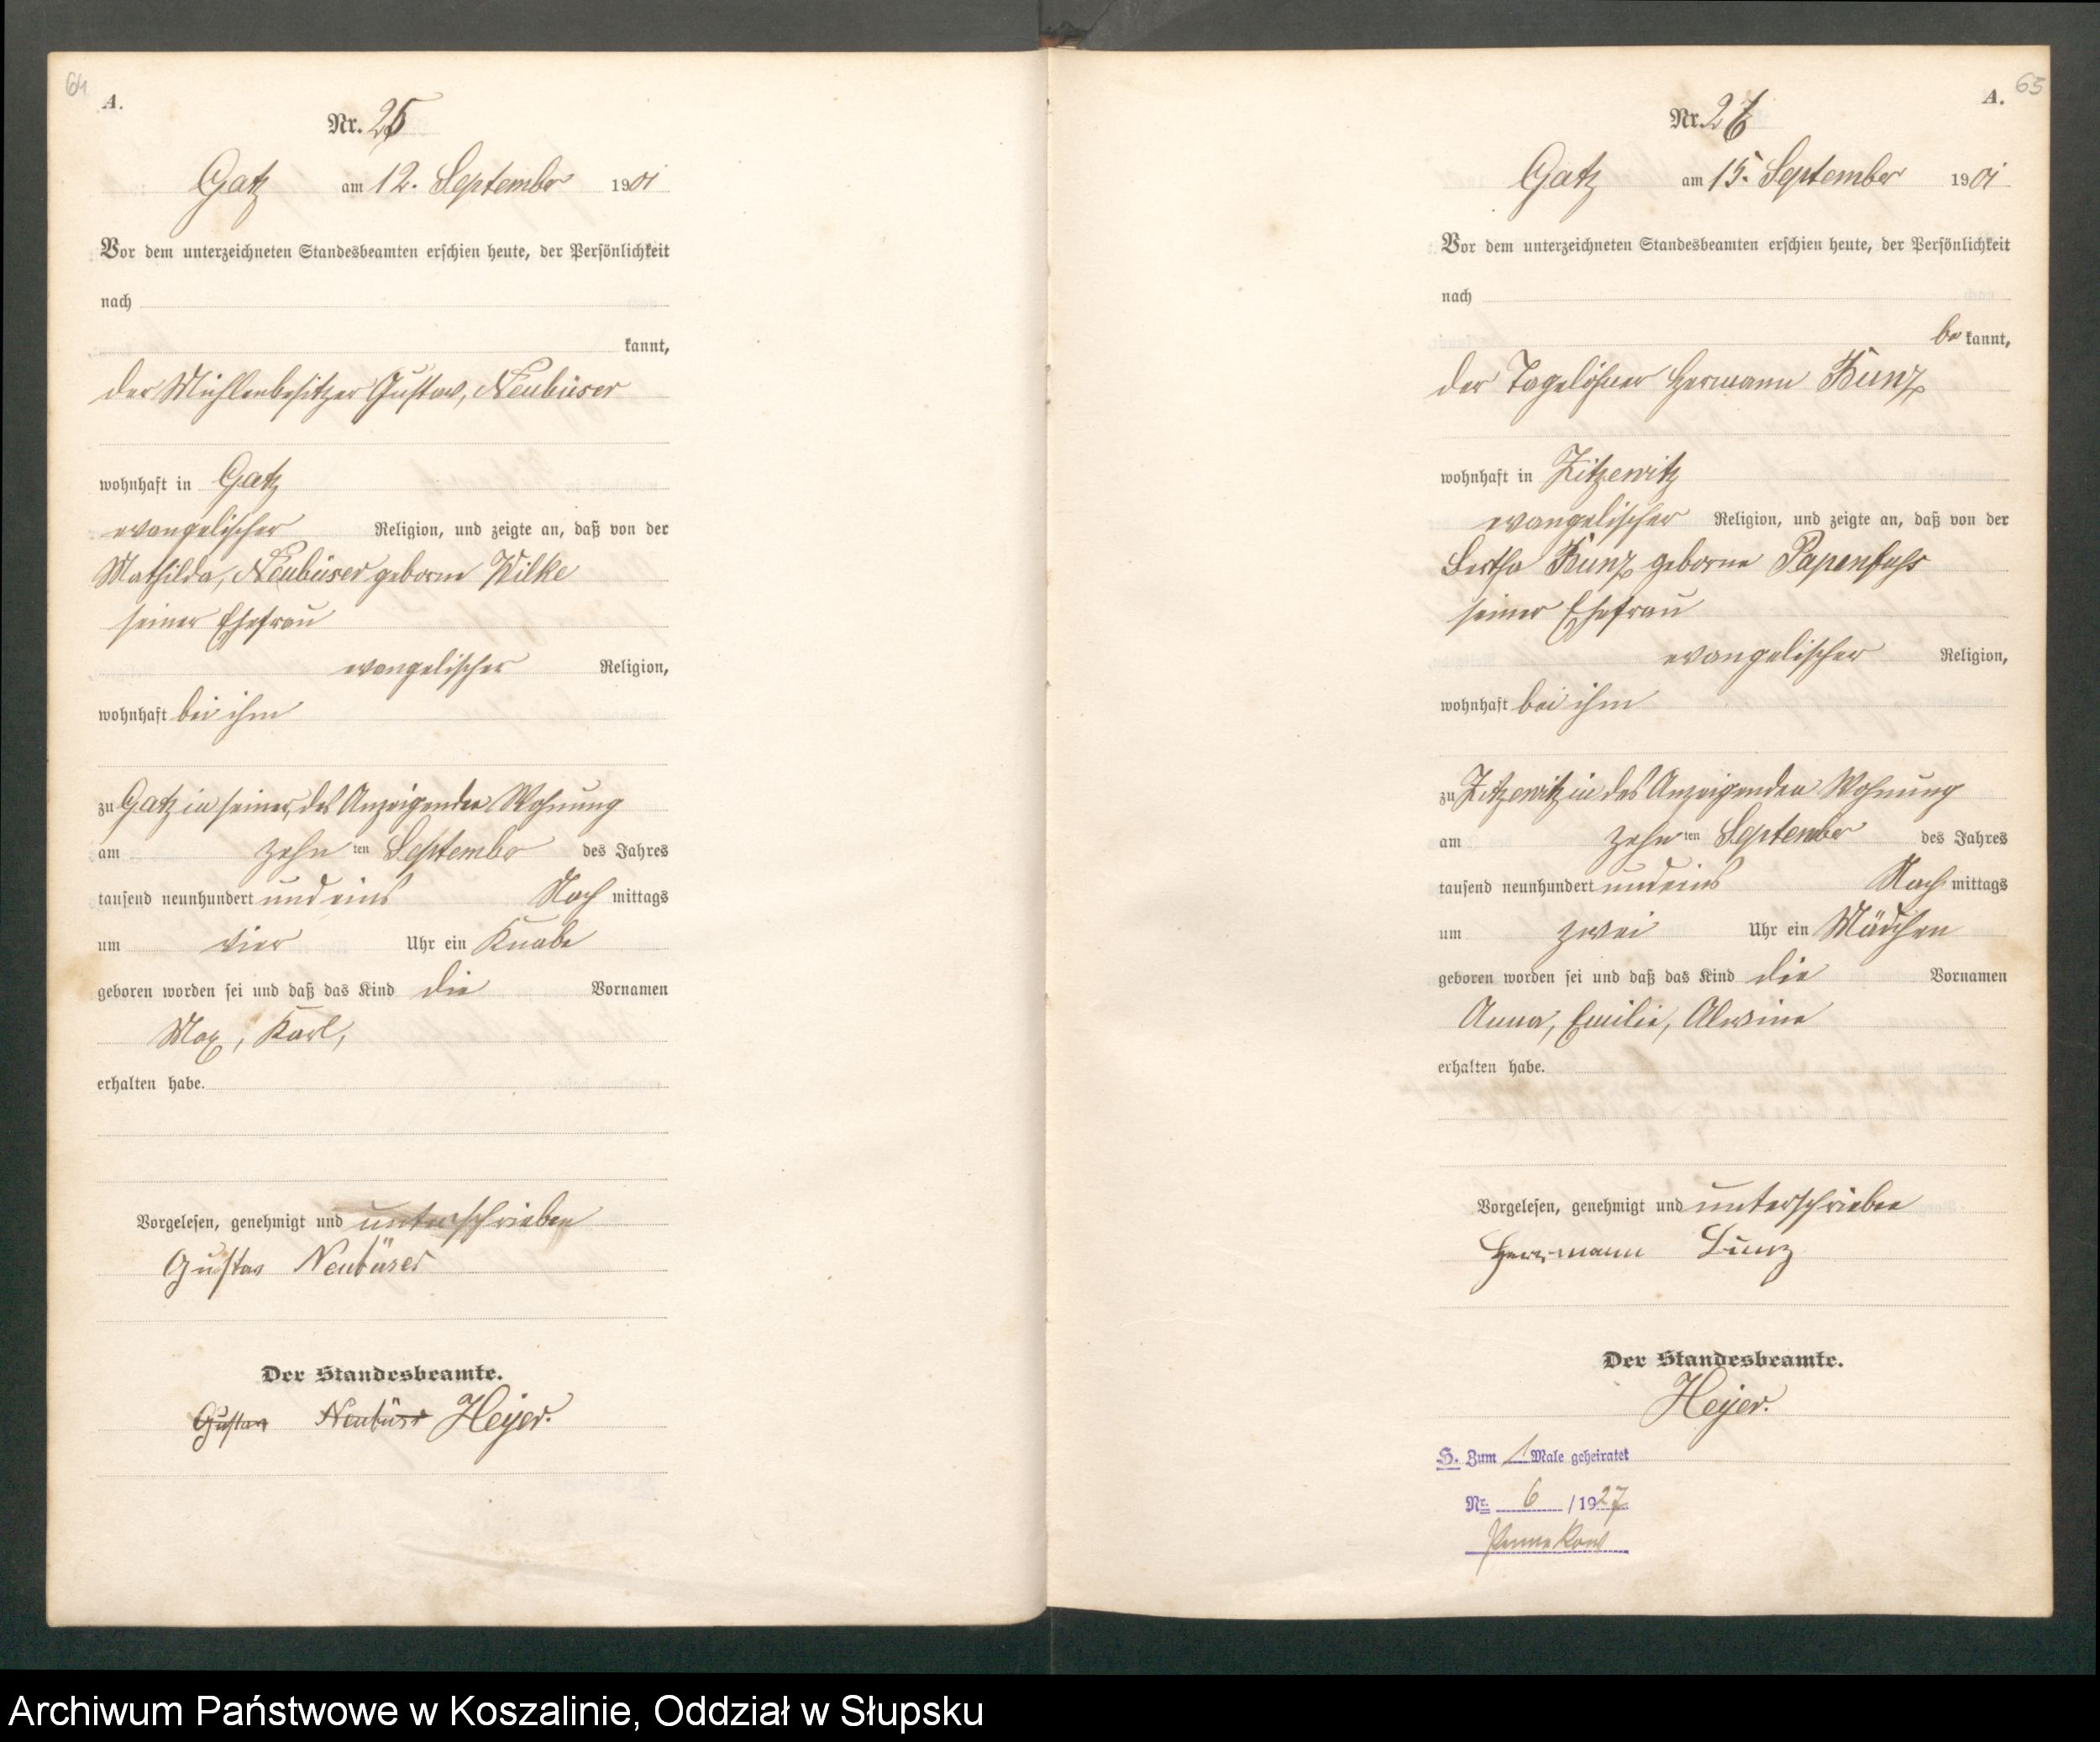 64
A.
Nr. 25
Gatz am 12. September 1901
Vor dem unterzeichneten Standesbeamten erschien heute, der Persönlichkeit
nach
kannt,
der Mühlenbesitzer Gustav, Neubüser
wohnhaft in Gatz
evangelischer Religion, und zeigte an, daß von der
Mathilda, Neubüser geborne Wilke
seiner Ehefrau
evangelischer Religion,
wohnhaft bei ihm
zu Gatz in seiner, des Anzeigenden Wohnung
am zehn ten September des Jahres
tausend neunhundert und eins Nach mittags
um vier Uhr ein Knabe
geboren worden sei und daß das Kind die Vornamen
Max, Karl,
erhalten habe.
Vorgelesen, genehmigt und unterschrieben
Gustav Neubüser
Der Standesbeamte.
Gustav Neubüser Heyer.
65
A.
Nr. 26
Gatz am 15. September 1901
Vor dem unterzeichneten Standesbeamten erschien heute, der Persönlichkeit
nach
be kannt,
der Tagelöhner Hermann Bunz
wohnhaft in Zitzewitz
evangelischer Religion, und zeigte an, daß von der
Bertha Bunz geborne Papenfuhs
seiner Ehefrau
evangelischer Religion,
wohnhaft bei ihm
zu Zitzewitz in des Anzeigenden Wohnung
am zehn ten September des Jahres
tausend neunhundert und eins Nach mittags
um zwei Uhr ein Mädchen
geboren worden sei und daß das Kind die Vornamen
Anna, Emilie, Alwine
erhalten habe.
Vorgelesen, genehmigt und unterschrieben
Herrmann Bunz
Der Standesbeamte.
Heyer.
H. Zum 1 Male geheiratet
Nr. 6 /1927
Pennekow
Archiwum Państwowe w Koszalinie, Oddział w Słupsku